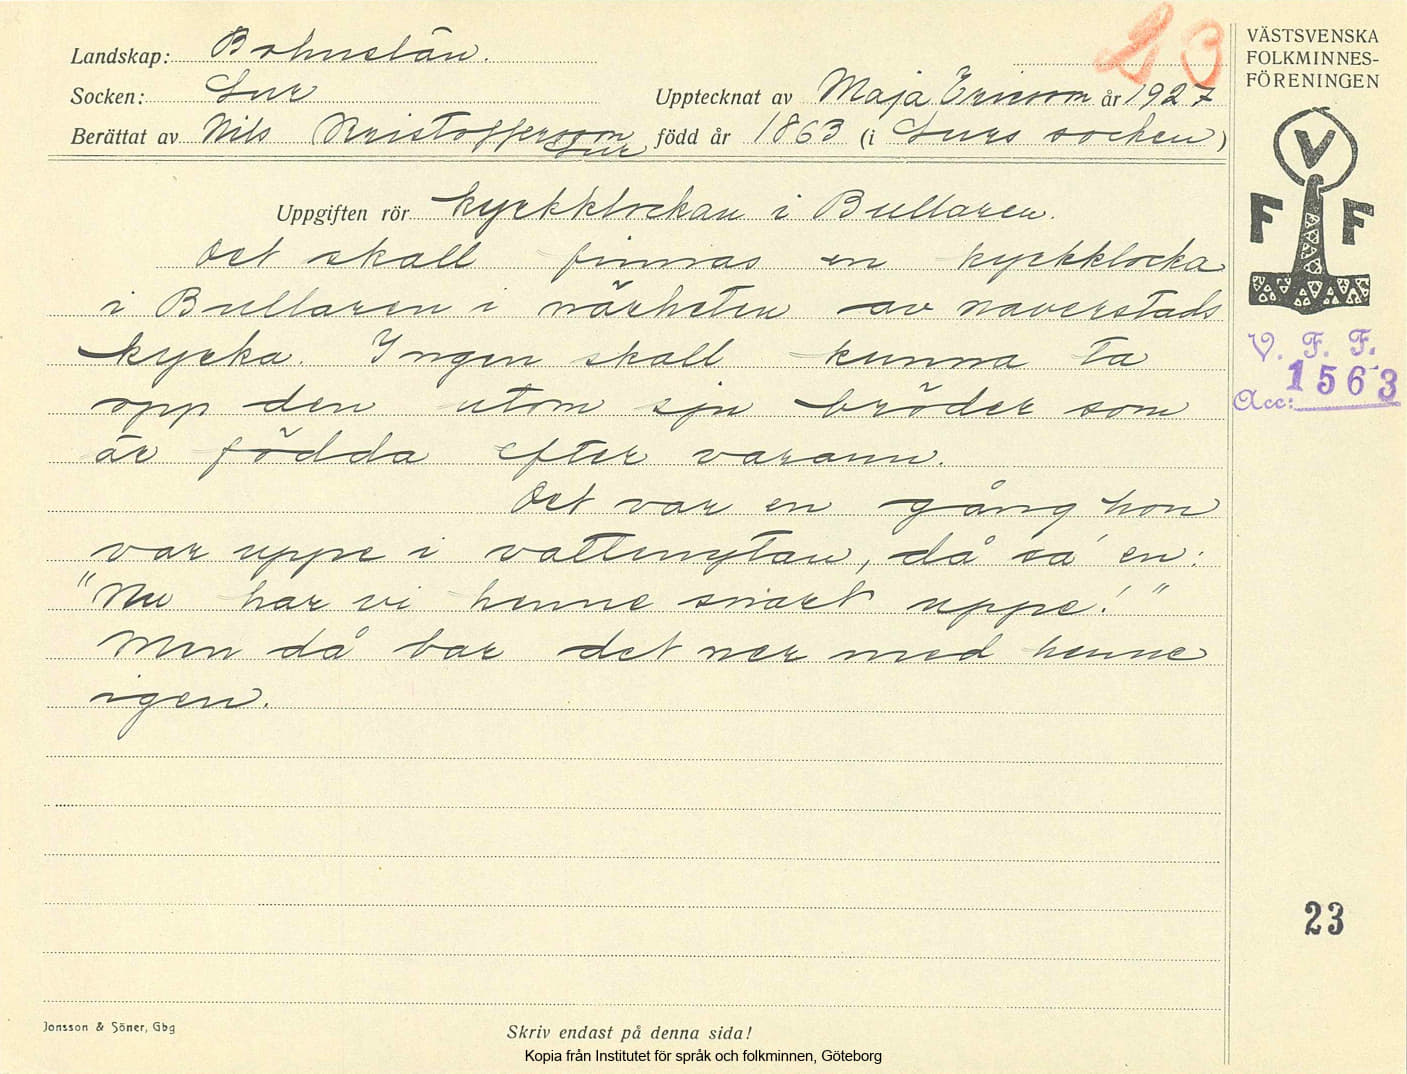 Landskap: Bohuslän.
Socken: Lur
Upptecknat av Maja Ericson år 1927
Berättat av Nils Kristofferson
Lur
född år 1863 (i Lurs socken)
Uppgiften rör kyrkklockan i Bullaren.
Det skall finnas en kyrkklocka
i Bullaren i närheten av naverstads
kyrka. Ingen skall kunna ta
opp den utom sju bröder som
är födda efter varann.
Det var en gång hon
var uppe i vattenytan, då sa' en:
"Nu har vi henne snart uppe!"
Men då bar det ner med henne
igen.
Jonsson & Söner, Gbg
Skriv endast på denna sida!
Kopia från Institutet för språk och folkminnen, Göteborg
VÄSTSVENSKA
FOLKMINNES-
FÖRENINGEN
V
F F
V. F. F.
Acc: 1563
23